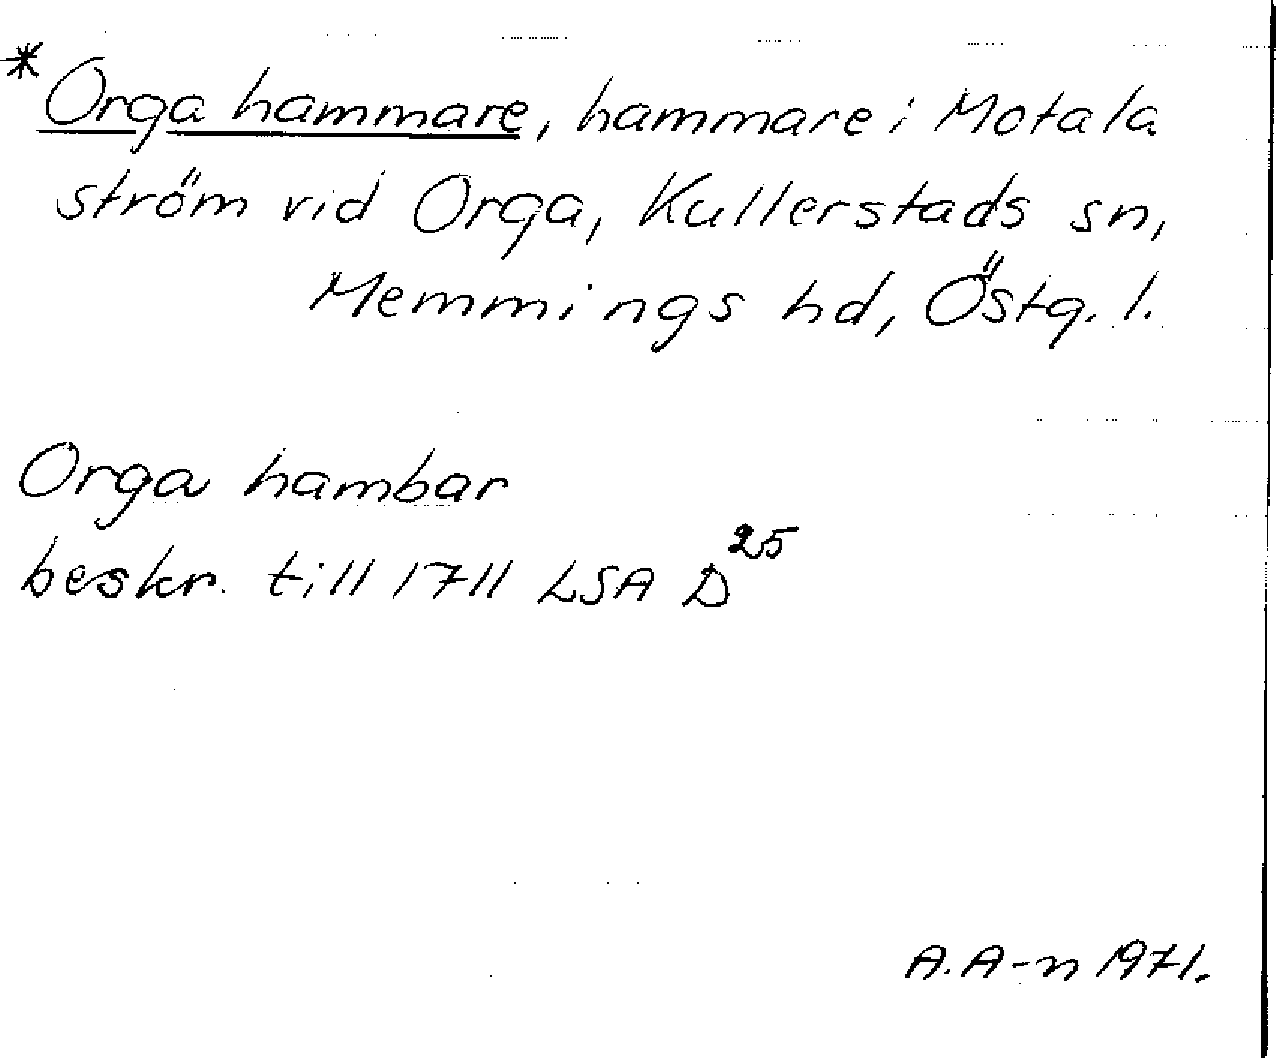 *Orga hammare, hammare i Motala
ström vid Orga, Kullerstads sn,
Memmings hd, Östg. l.
Orga hambar
beskr. till 1711 LSA D25
A.A-n 1971.